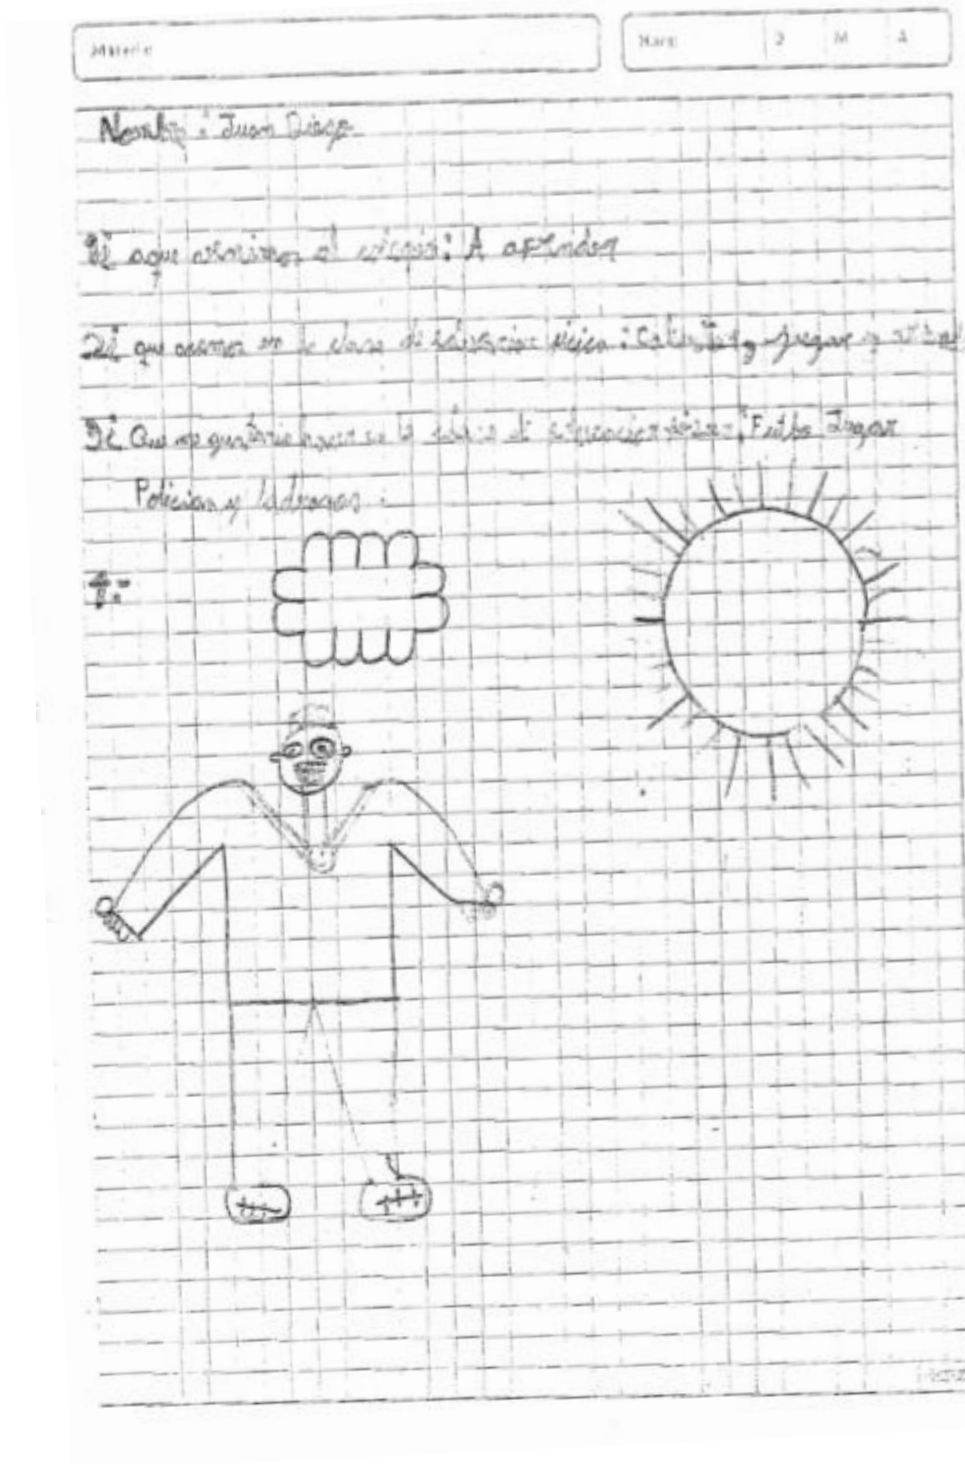 Materia:
Hora: D M A
Nombre: Juan Diego
Di aque venimos al colegio: A aprender
Di que asemos en la clase de educacion fisica: Calentar y jugar y
Di Que me gustaria hacer en la de educacion fisica: Futbo Jugar
Policias y ladrones: